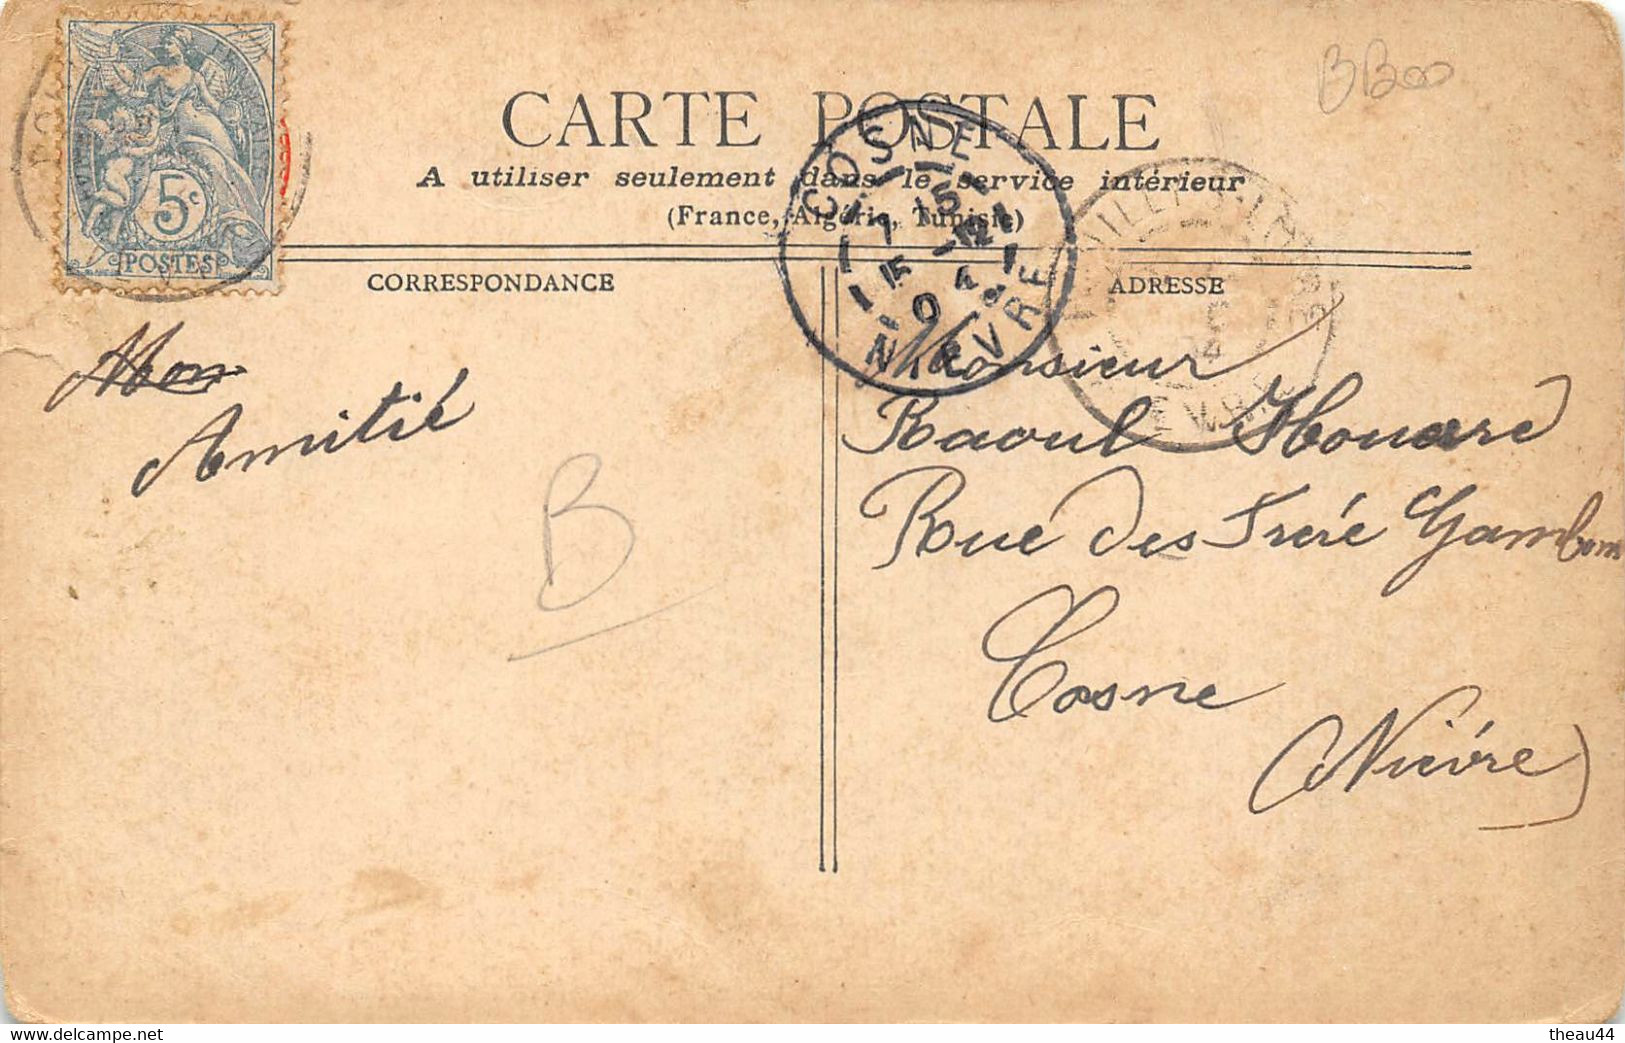 BB00
CARTE POSTALE
A utiliser seulement dans le service intérieur
(France, Algérie, Tunisie)
5c
POSTES
COSNE
7 15
15 -12
04
NIEVRE
CORRESPONDANCE
ADRESSE
Mon
Amitié
B
Monsieur
Raoul Houare
Rue des Freré Gambon
Cosne
(Nièvre)
theau44